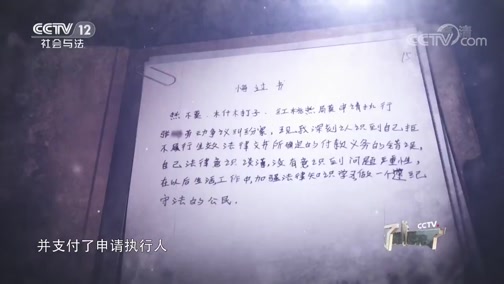 CCTV 12
社会与法
CCTV.com
15
悔过书
我不是
申请执行
劳动争议纠纷案,现我深刻认识到自己拒
不履行生效法律文书所确定的付款义务的错误,
自己法律意识淡薄,没有意识到问题严重性,
在以后生活工作中,加强法律知识学习做一个遵纪
守法的公民。
并支付了申请执行人
CCTV